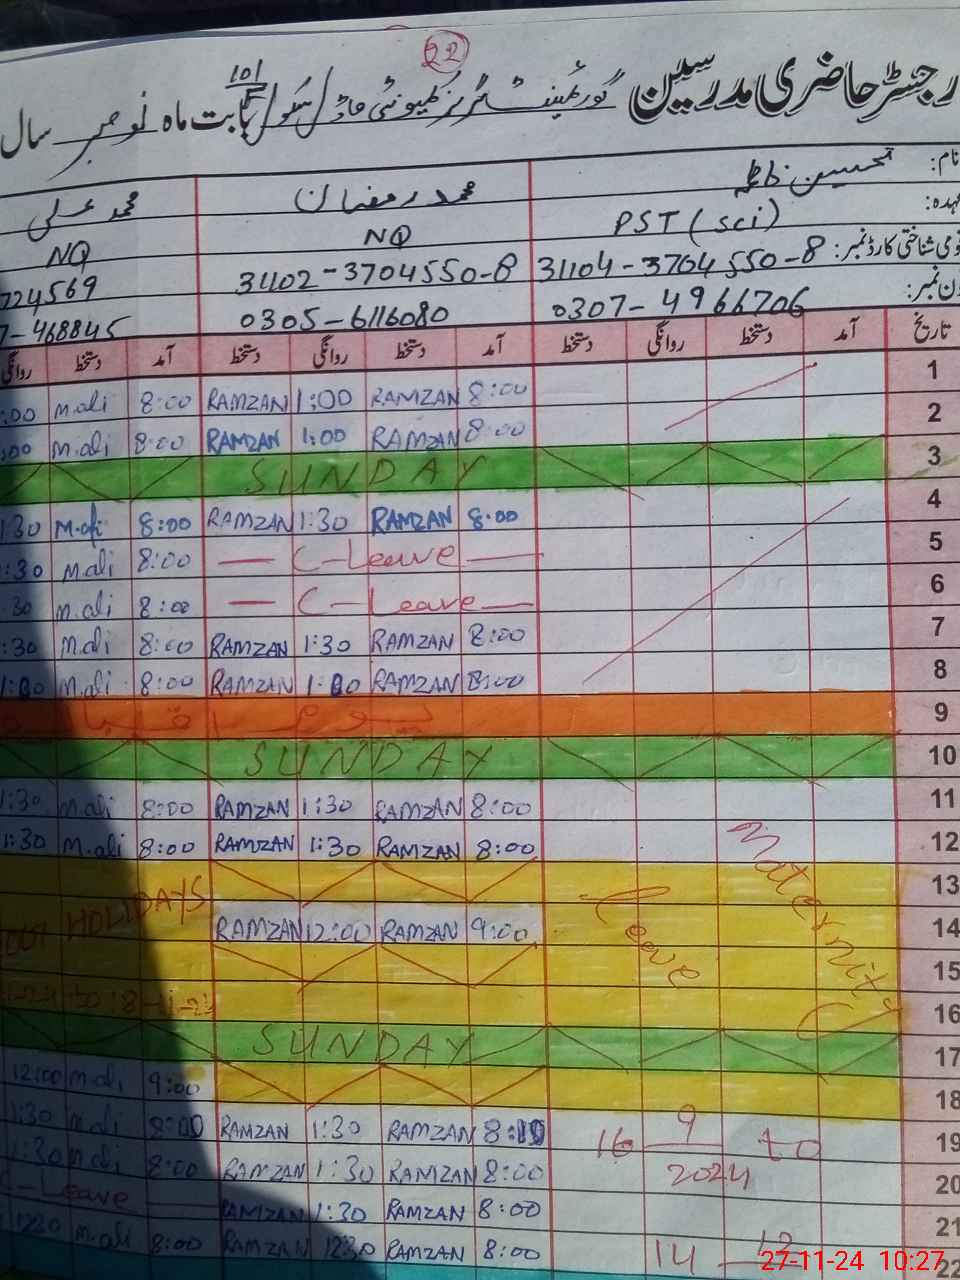 22
رجسٹر حاضری مدرسین گورنمنٹ گرلز کمیونٹی ماڈل سکول 101 بابت ماہ نومبر سال
نام: تحسین فاطمہ محمد رمضان محمد علی
عہدہ: PST (sci) NQ NQ
قومی شناختی کارڈ نمبر: 31104-3704550-8 31102-3704550-8 724569
فون نمبر: 0307-4966706 0305-6116080 7-468845
تاریخ آمد دستخط روانگی دستخط آمد دستخط روانگی دستخط آمد دستخط روانگی
1 8:00 RAMZAN 1:00 RAMZAN 8:00 M.ali :00
2 8:00 RAMZAN 1:00 RAMZAN 8:00 M.ali :00
3 SUNDAY
4 8:00 RAMZAN 1:30 RAMZAN 8:00 M.ali 1:30
5 C-Leave 8:00 M.ali :30
6 C-Leave 8:00 M.ali 30
7 8:00 RAMZAN 1:30 RAMZAN 8:00 M.ali :30
8 8:00 RAMZAN 1:00 RAMZAN 8:00 M.ali 1:00
9
10 SUNDAY
11 8:00 RAMZAN 1:30 RAMZAN 8:00 M.ali 1:30
12 8:00 RAMZAN 1:30 RAMZAN 8:00 M.ali 1:30
Maternity Leave
13
14 9:00 RAMZAN 12:00 RAMZAN HOLIDAYS
15
16
17 SUNDAY
18 9:00 M.ali 12:00
19 16 9 to 8:10 RAMZAN 1:30 RAMZAN 8:00 M.ali 1:30
20 2024 8:00 RAMZAN 1:30 RAMZAN 8:00 M.ali 1:30
21 8:00 RAMZAN 1:30 RAMZAN C-Leave
22 14 12 8:00 RAMZAN 1230 RAMZAN 8:00 M.ali 1230
27-11-24 10:27